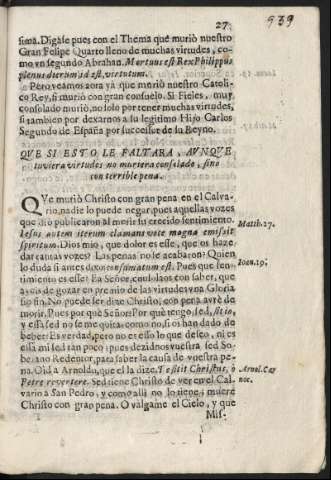 27
939
sima. Digase pues con el Thema que muriò nuestro
Gran Felipe Quarto lleno de muchas virtudes, co-
mo vn segundo Abrahan. Mortuus est Rex Philippus
plenus dierum id est, virtutum.
Pero veamos aora yà que muriò nuestro Catoli-
co Rey, si muriò con gran consuelo. Si Fieles, muy
consolado muriò, no solo por tener muchas virtudes,
si tambien por dexarnos a su legitimo Hijo Carlos
Segundo de España por successor de su Reyno.
QVE SI ESTO LE FALTARA, AVNQVE
tuviera virtudes no muriera consolado, sino
con terrible pena.
QVe muriò Christo con gran pena en el Calva-
rio, nadie lo puede negar, pues aquellas vozes
que dio publicaron al morir su crecido sentimiento.
Iesus autem iterum clamans voce magna emisit
Matth. 27.
spiritum. Dios mio, que dolor es esse, que os haze
dar tantas vozes? Las penas no se acabaron? Quien
lo duda si antes dixo consumatum est. Pues que sen-
Ioan. 19.
timiento es esse? Ea Señor, consolaos con saber, que
aveis de gozar en premio de las virtudes vna Gloria
sin fin. No puede ser dize Christo, con pena avrè de
morir. Pues por què Señor? Por què tengo, sed, sitio,
y essa sed no se me quita: como no, si os han dado de
beber? Es verdad, pero no es esso lo que deseo, ni es
essa mi sed tan poco; pues dezidnos vuestra sed Sobe-
rano Redentor, para saber la causa de vuestra pe-
na. Oid a Arnoldo, que el la dize. Tositit Christus, ò
Arnol. Car
Petre revertere. Sed tiene Christo de ver en el Cal-
noc.
vario a San Pedro, y como alli no le tiene, muere
Christo con gran pena. O valgame el Cielo, y que
Mis-